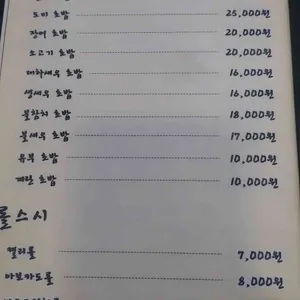 도미 초밥 25,000원
장어 초밥 20,000원
소고기 초밥 20,000원
대하새우 초밥 16,000원
생새우 초밥 16,000원
불참치 초밥 18,000원
불새우 초밥 17,000원
유부 초밥 10,000원
계란 초밥 10,000원
롤스시
캘리롤 7,000원
아보카도롤 8,000원